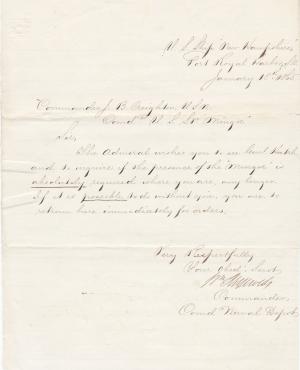 U. S. Ship "New Hampshire"
Port Royal Harbor, S.C.
January 1865
Commander J. B. Creighton, U.S.N.
Comd'g U. S. Str "Mingoe"
Sir,
The Admiral wishes you to see Genl Hatch
and to inquire if the presence of the "Mingoe" is
absolutely required where you are, any longer.
If it is possible to do without you, you are to
return here immediately for orders.
Very Respectfully
Your Obedt. Servt.
Wm Reynolds
Commander
Comd Naval Depot